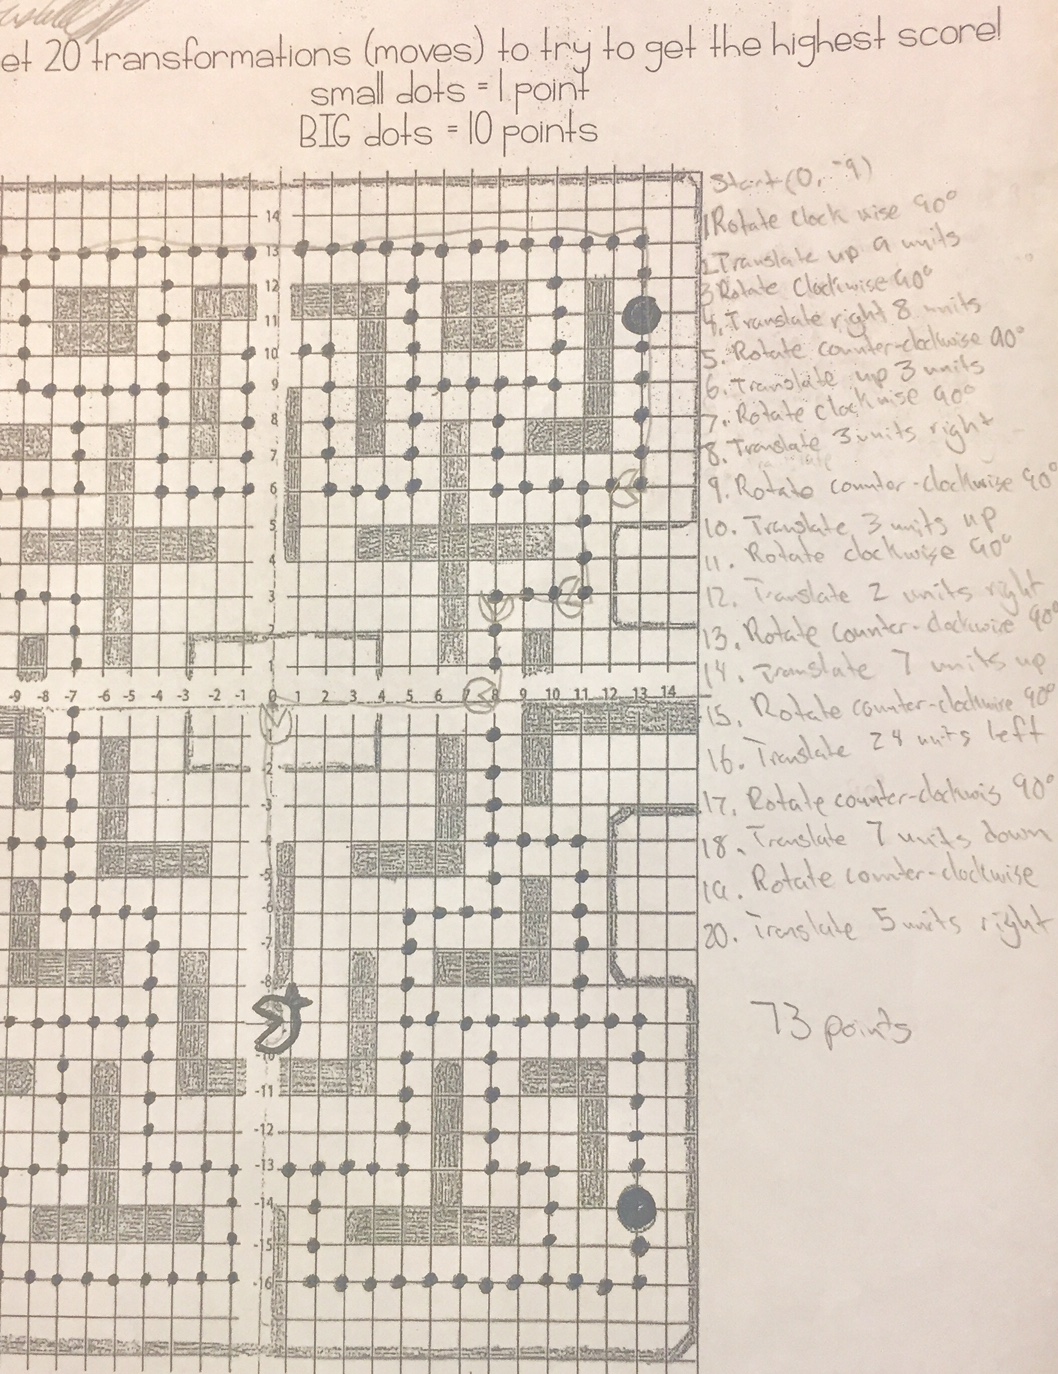 et 20 transformations (moves) to try to get the highest score!
small dots = 1 point
BIG dots = 10 points
Start (0, -9)
1. Rotate clock wise 90°
2. Translate up 9 units
3. Rotate Clockwise 90°
4. Translate right 8 units
5. Rotate counter-clockwise 90°
6. Translate up 3 units
7. Rotate clockwise 90°
8. Translate 3 units right
9. Rotate counter-clockwise 90°
10. Translate 3 units up
11. Rotate clockwise 90°
12. Translate 2 units right
13. Rotate counter-clockwise 90°
14. Translate 7 units up
15. Rotate counter-clockwise 90°
16. Translate 24 units left
17. Rotate counter-clockwis 90°
18. Translate 7 units down
19. Rotate counter-clockwise
20. Translate 5 units right
73 points
14
13
12
11
10
9
8
7
6
5
4
3
2
1
-9 -8 -7 -6 -5 -4 -3 -2 -1 0 1 2 3 4 5 6 7 8 9 10 11 12 13 14
-1
-2
-3
-4
-5
-6
-7
-8
-10
-11
-12
-13
-14
-15
-16